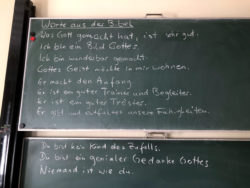 Worte aus der Bibel
Was Gott gemacht hat, ist sehr gut.
Ich bin ein Bild Gottes
Ich bin wunderbar gemacht.
Gottes Geist möchte in mir wohnen.
Er macht den Anfang
Er ist ein guter Trainer und Begleiter.
Er ist ein guter Tröster.
Er gibt und entfaltet unsere Fähigkeiten.
Du bist kein Kind des Zufalls.
Du bist ein genialer Gedanke Gottes
Niemand ist wie du.